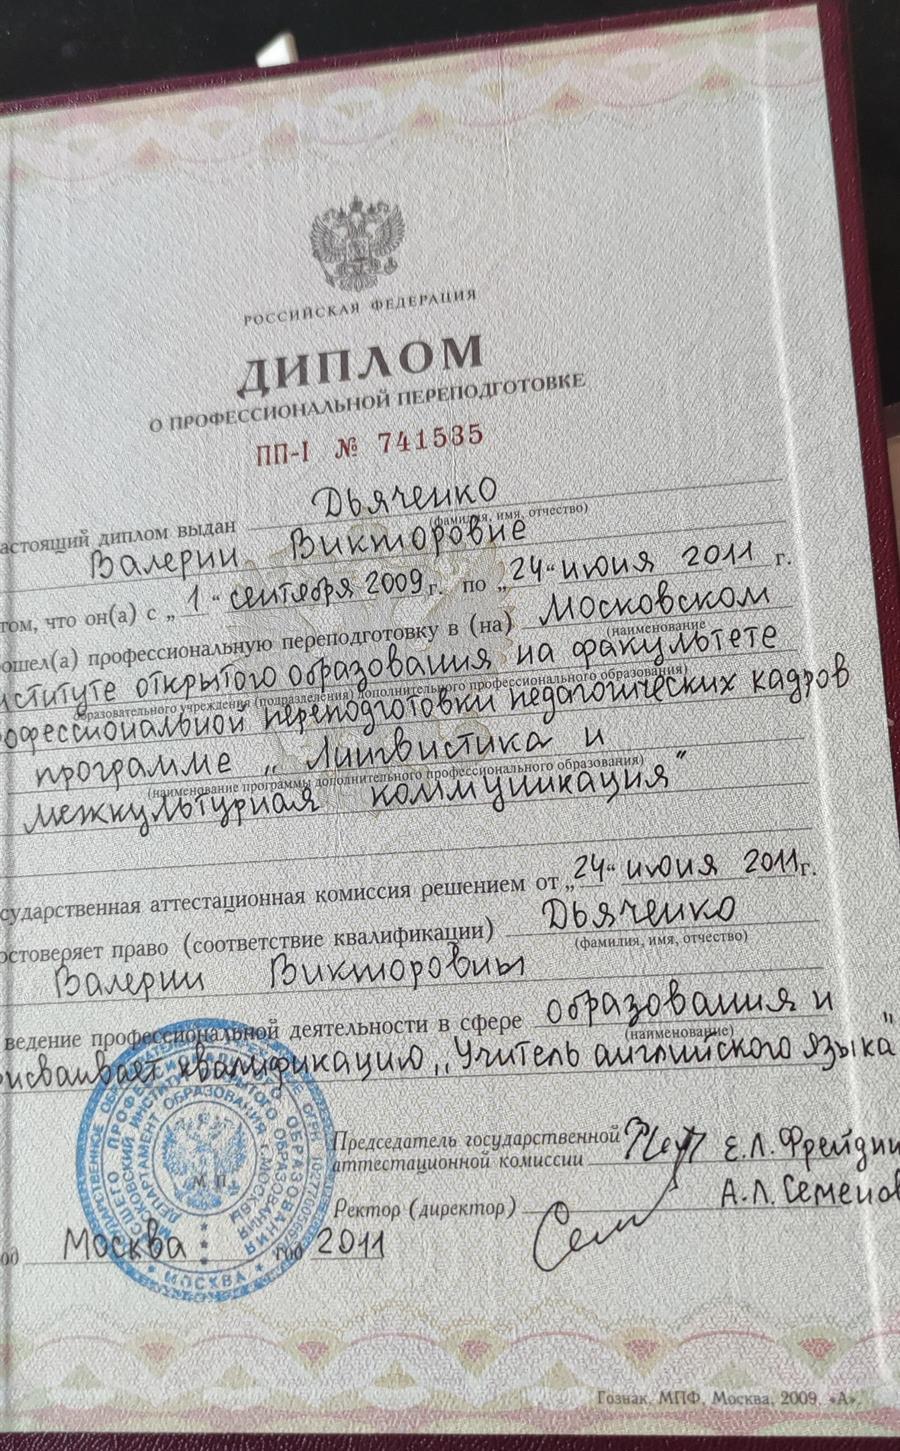 РОССИЙСКАЯ ФЕДЕРАЦИЯ
ДИПЛОМ
О ПРОФЕССИОНАЛЬНОЙ ПЕРЕПОДГОТОВКЕ
ПП-I № 741535
астоящий диплом выдан Дьяченко
(фамилия, имя, отчество)
Валерии Викторовне
том, что он(а) с „1“ сентября 2009 г. по „24“ июня 2011 г.
ошел(а) профессиональную переподготовку в (на) Московском
(наименование
институте открытого образования на факультете
образовательного учреждения (подразделения) дополнительного профессионального образования)
офессиональной переподготовки педагогических кадров
программе „Лингвистика и
(наименование программы дополнительного профессионального образования)
межкультурная коммуникация"
сударственная аттестационная комиссия решением от „24“ июня 2011 г.
остоверяет право (соответствие квалификации) Дьяченко
(фамилия, имя, отчество)
Валерии Викторовны
ведение профессиональной деятельности в сфере образования и
(наименование)
рисваивает квалификацию „Учитель английского языка"
Председатель государственной
аттестационной комиссии Е.Л. Фрейдин
Ректор (директор) А.Л. Семенов
М.П.
од Москва год 2011
МОСКВА
Гознак, МПФ, Москва, 2009, «А».